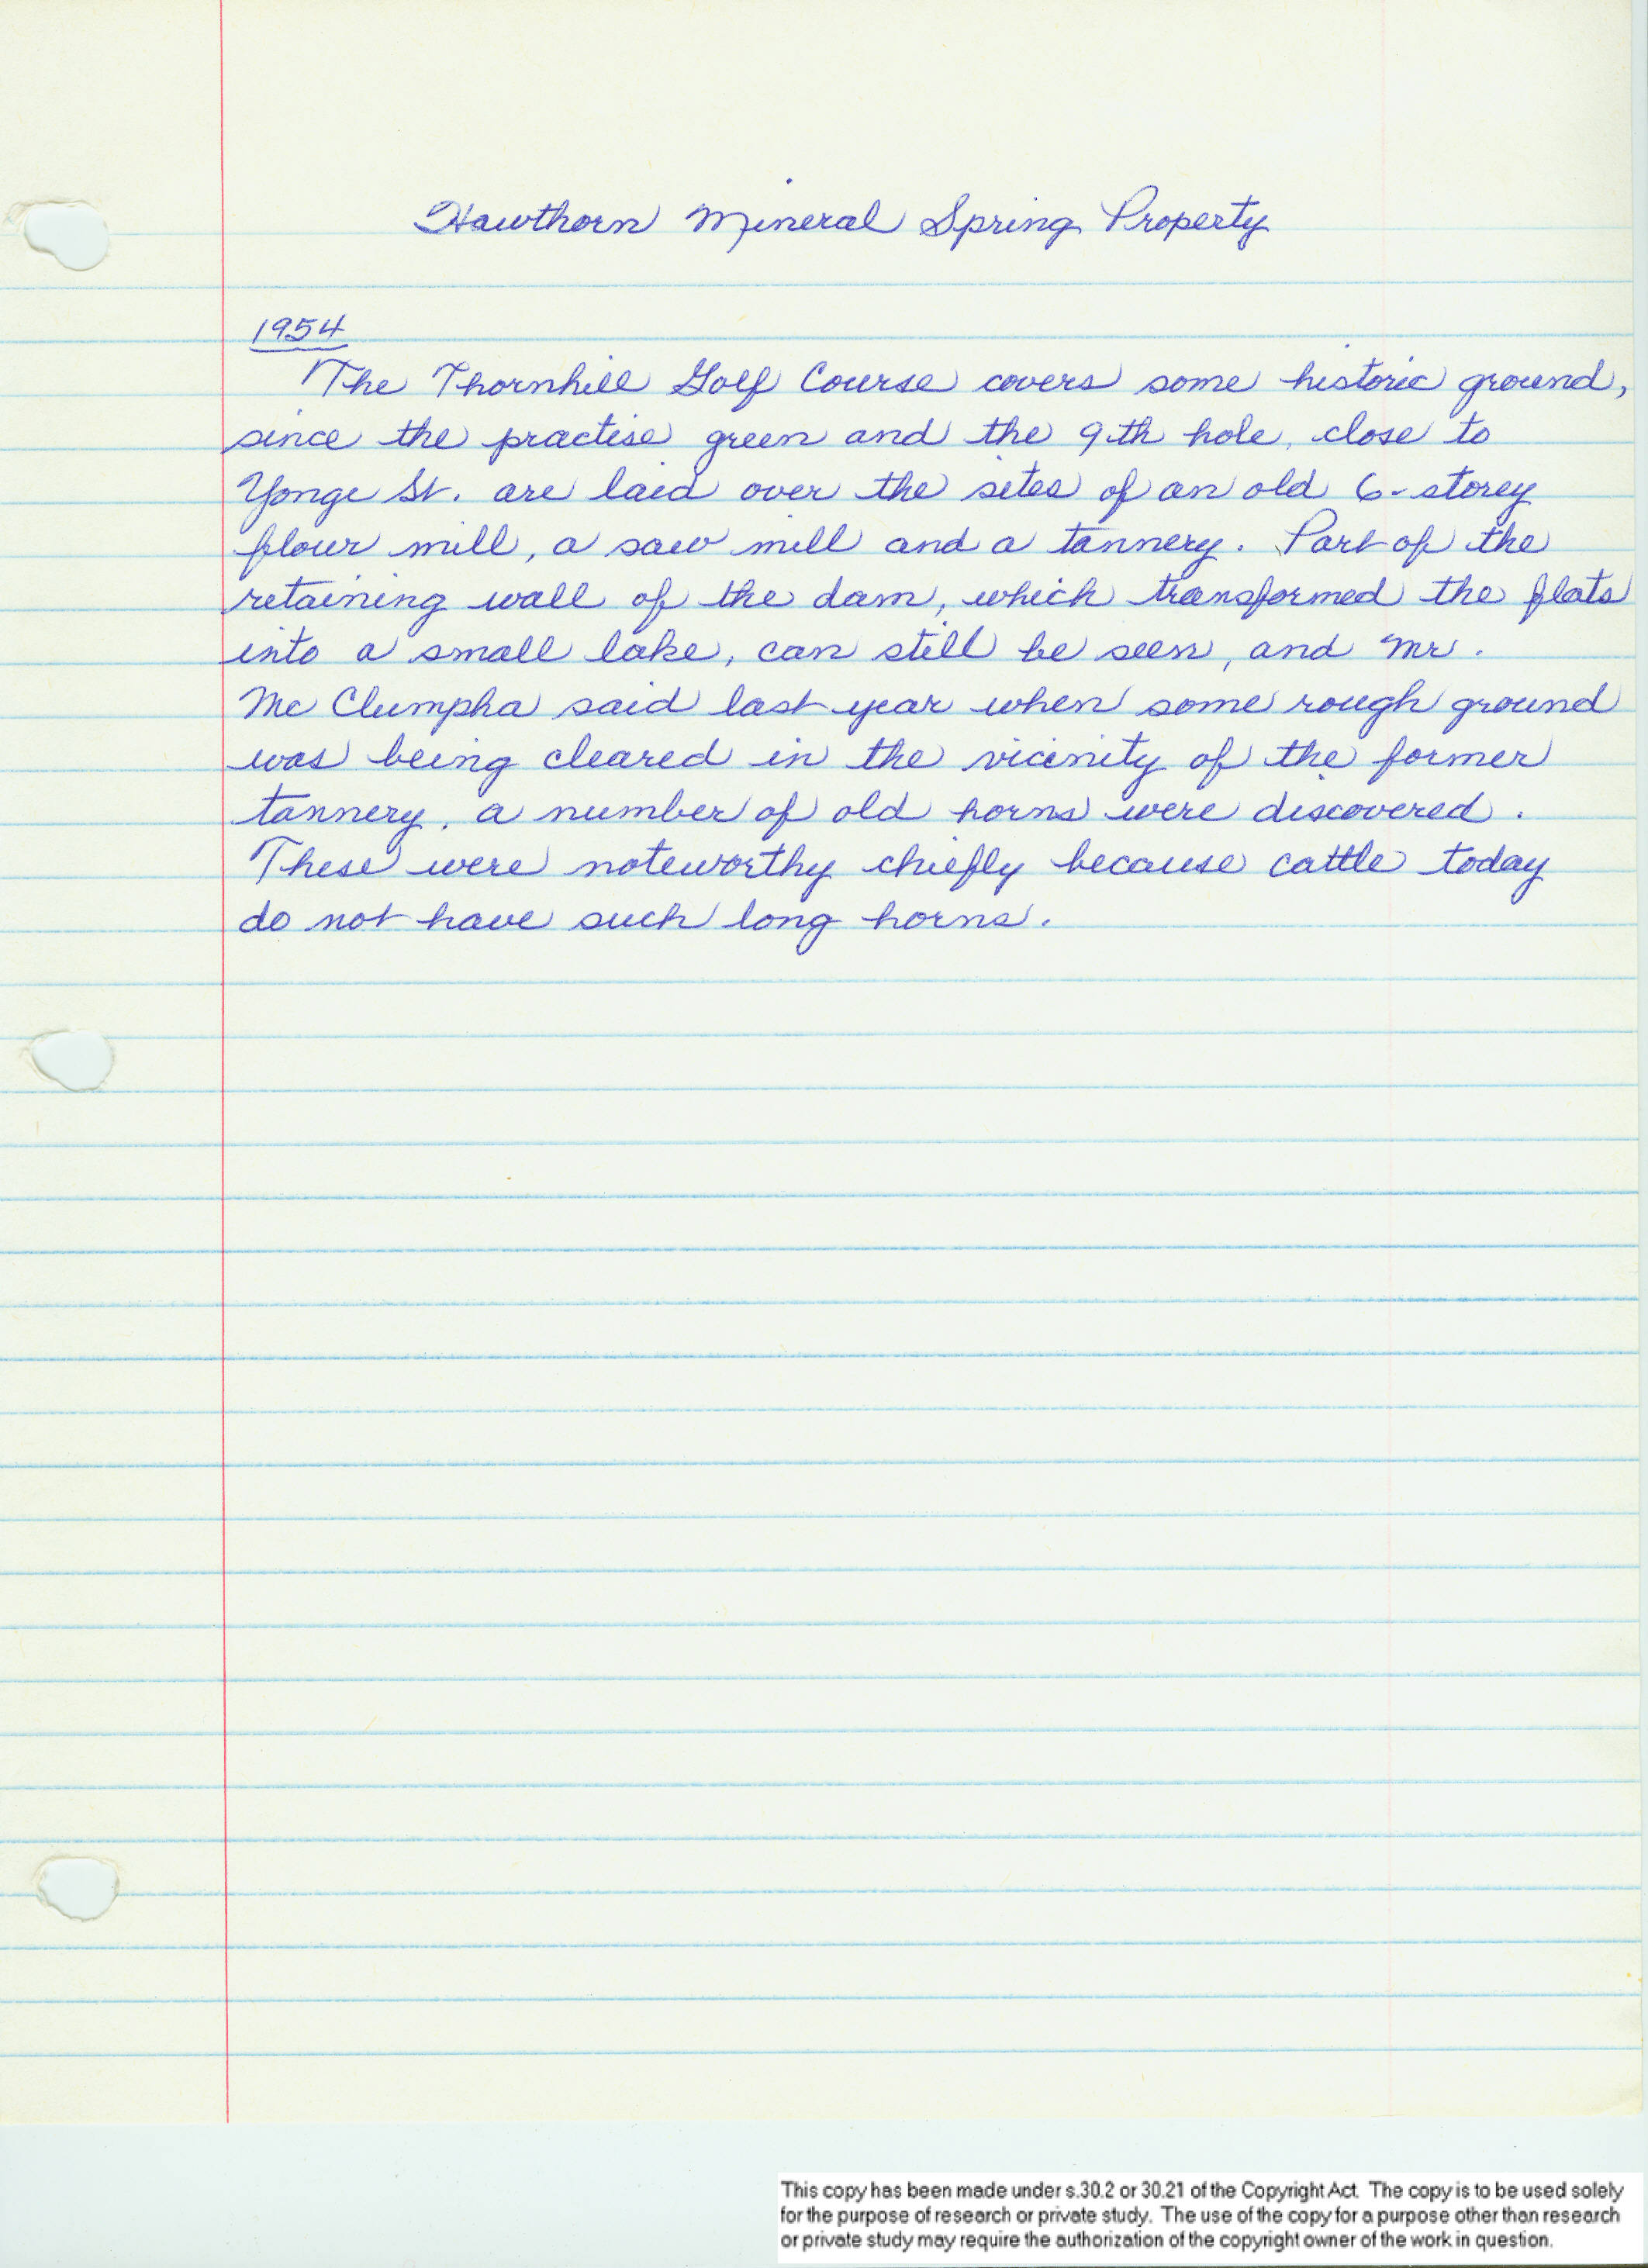 Hawthorn Mineral Spring Property
1954
The Thornhill Golf Course covers some historic ground,
since the practise green and the 9th hole, close to
Yonge St. are laid over the sites of an old 6-storey
flour mill, a saw mill and a tannery. Part of the
retaining wall of the dam, which transformed the flats
into a small lake, can still be seen, and Mr.
Mc Clumpha said last year when some rough ground
was being cleared in the vicinity of the former
tannery, a number of old horns were discovered.
These were noteworthy chiefly because cattle today
do not have such long horns.
This copy has been made under s.30.2 or 30.21 of the Copyright Act. The copy is to be used solely
for the purpose of research or private study. The use of the copy for a purpose other than research
or private study may require the authorization of the copyright owner of the work in question.